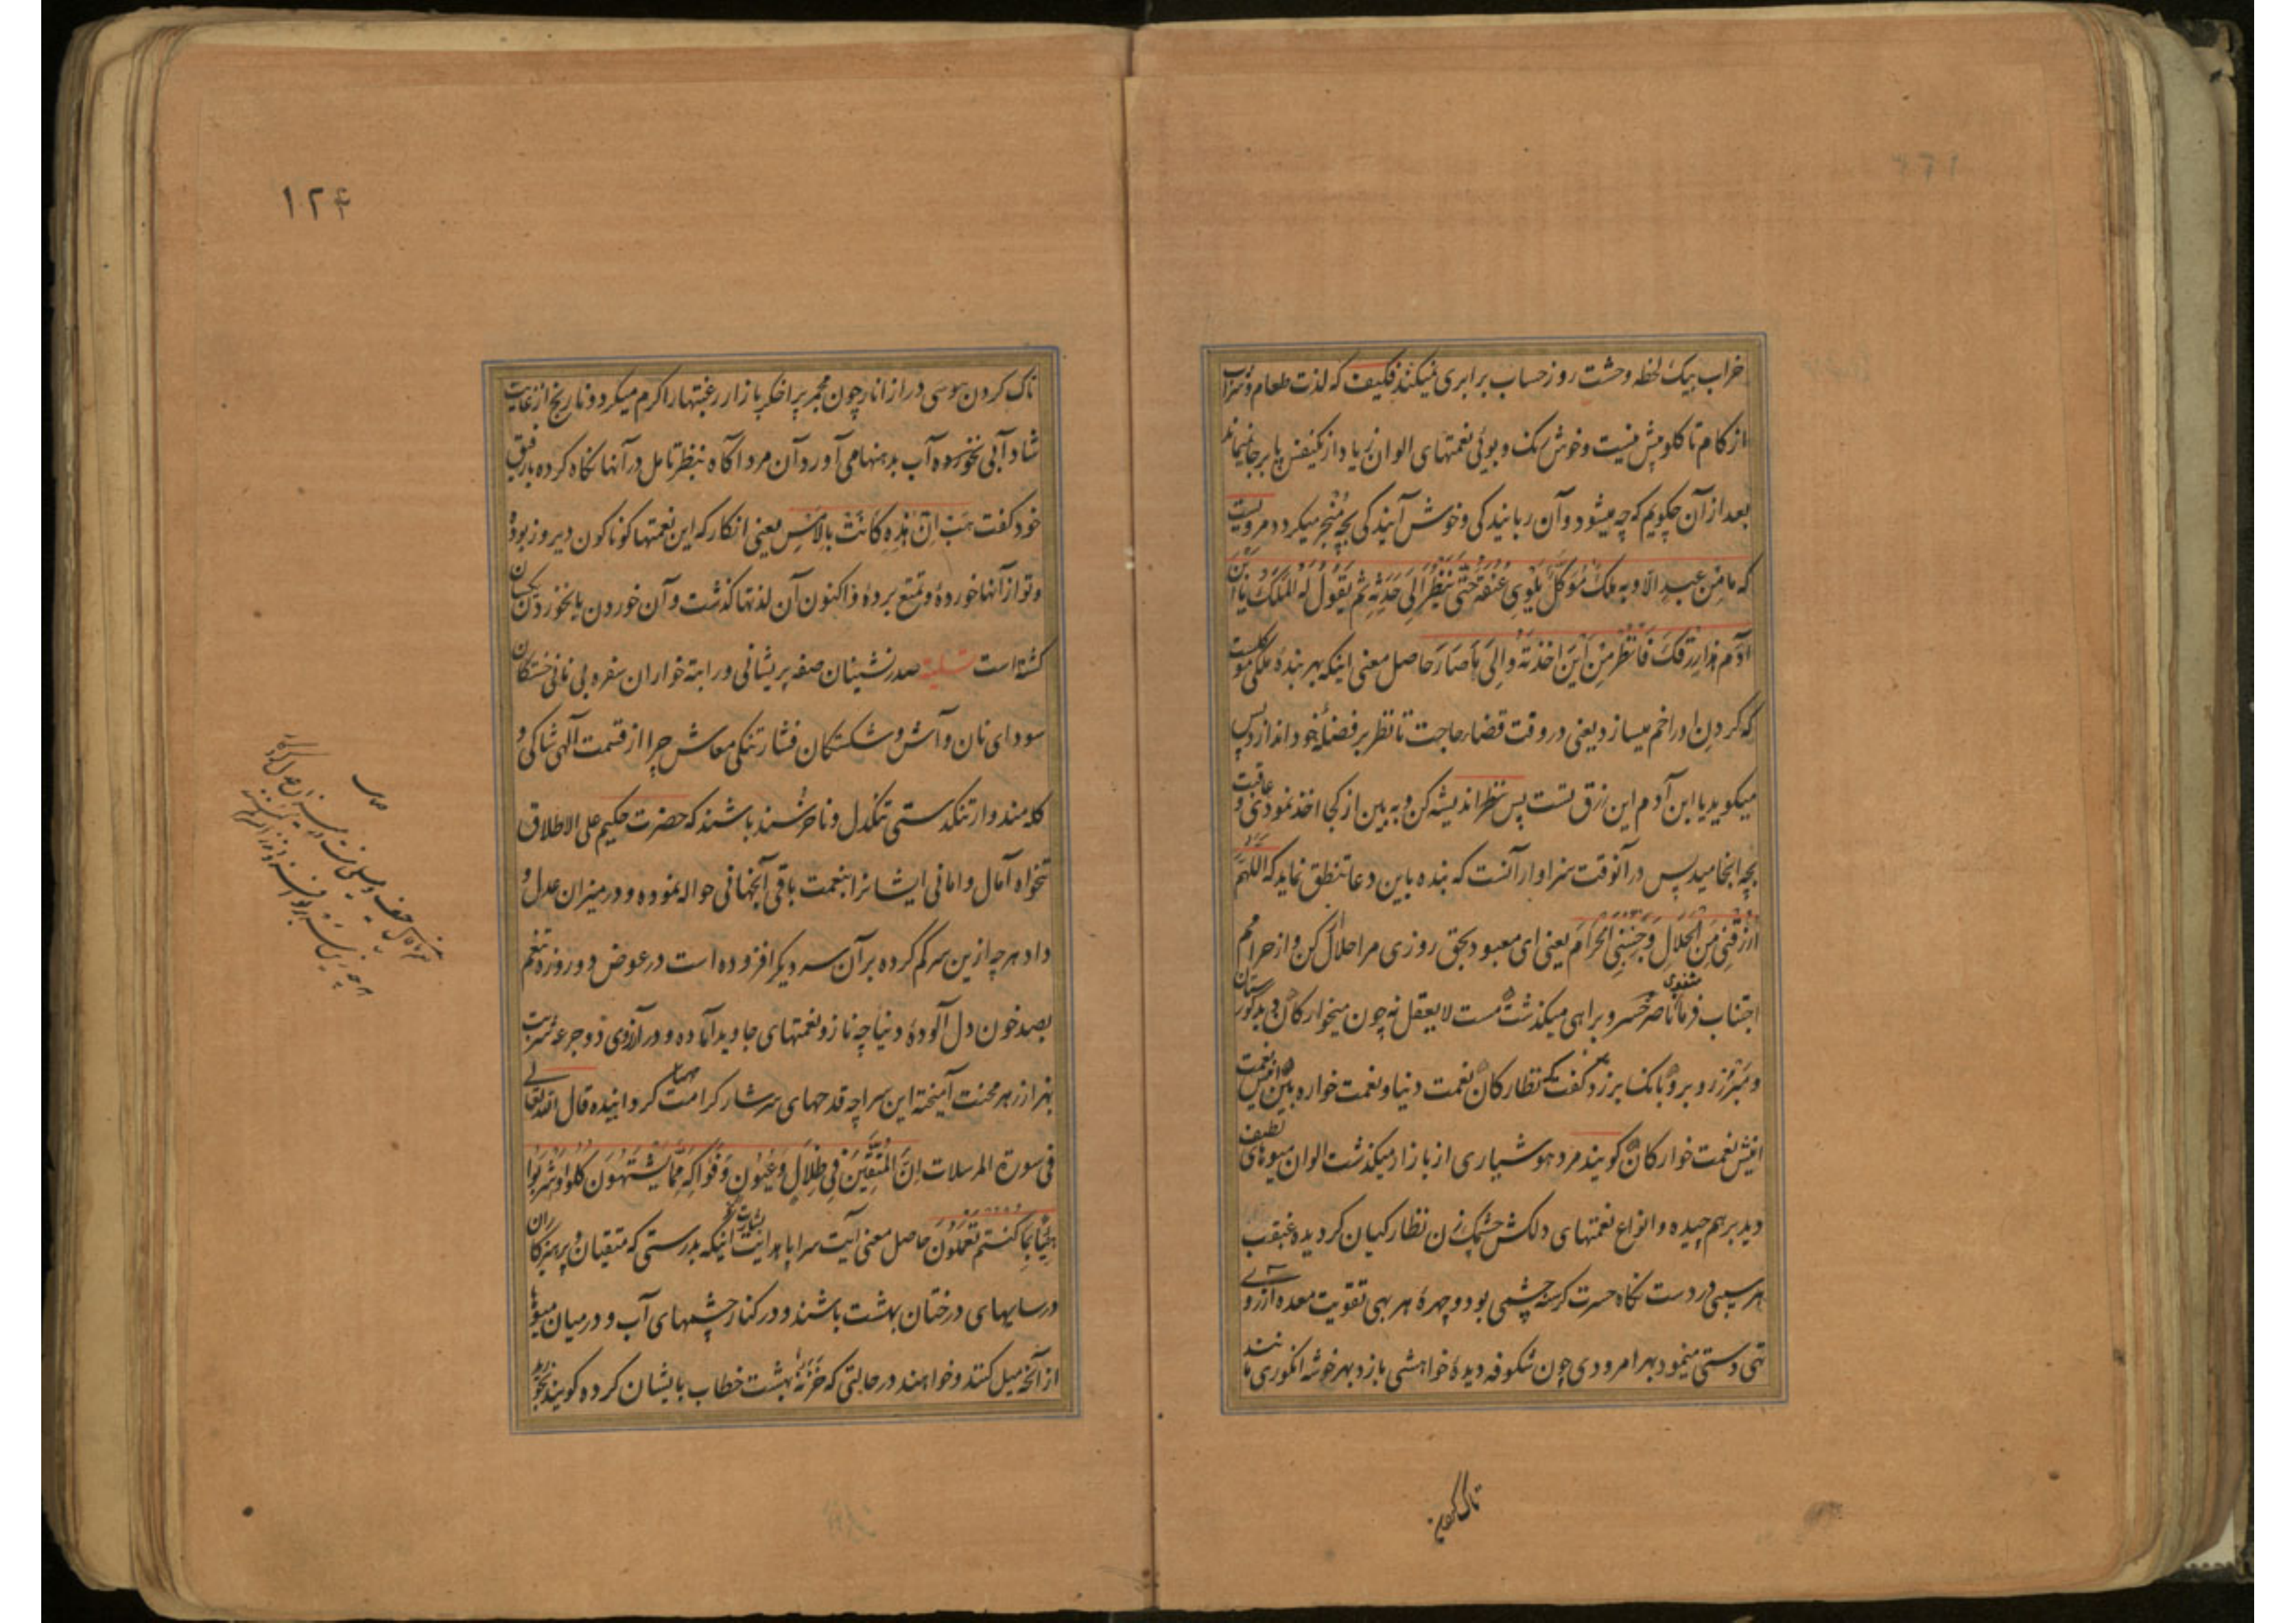 خراب بیک لحظه وحشت روز حساب برابری نمیکند فکیف که لذت طعام و شراب
از کام تا کلو پیش نیست و خوش رنک و بوئی نعمتهای الوان زیاد از یکنفس پا بر جا نیماند
بعد از آن چکویم که چه میشود و آن ربایندکی و خوش آیندکی بچه منجر میکردد مرویست
که ما من عبد الا و به ملک موکل یلوی عنقه حتی ینظر الی حدثه ثم یقول له الملک یا ابن
آدم هذا رزقک فانظر من این اخذته و الی ما صار حاصل معنی اینکه بهر بندهٔ ملکی موکلست
که کردن او را خم میسازد یعنی در وقت قضاء حاجت تا نظر بر فضلهٔ خود اندازد پس
میکوید یا ابن آدم این رزق تست پس بنظر اندیشه کن و به بین از کجا اخذ نمودی و عاقبت
بچه انجامید پس در آنوقت سزاوار آنست که بنده باین دعا تنطق نماید که اللهم
ارزقنی من الحلال و جنبنی الحرام یعنی ای معبود بحق روزی مرا حلال کن و از حرامم
اجتناب فرما مثنوی ناصر خسرو براهی میکذشت مست لایعقل نه چون میخوارکان دید کورستان
و مبرز روبرو بانک بر زد کفت کای نظارکان نعمت دنیا و نعمت خواره بین اینش نعمت
اینش نعمت خوارکان کویند مرد هوشیاری از بازار میکذشت الوان میوهای لطیف
دید بر هم چیده و انواع نعمتهای دلکش چشمک زن نظارکیان کردیده غبغب
هر سیبی در دست نکاه حسرت کرسنه چشمی بود و چهرهٔ هر بهی تقویت معده آرزوی
تهی دستی مینمود بهر امرودی چون شکوفه دیدهٔ خواهشی باز و بهر خوشه انکوری مانند
تاک کردن
۱۲۴
تاک کردن هوسی دراز انار چون مجمر پر اخکر بازار رغبتها را کرم میکرد و نارنج از غایت
شادابی نخورده آب بدهنها می آورد آن مرد آکاه بنظر تامل در آنها نکاه کرده با رفیق
خود کفت هب ان هذه کانت بالامس یعنی انکار که این نعمتها کوناکون دیروز بود
و تو از آنها خوردهٔ و تمتع بردهٔ و اکنون آن لذتها کذشت و آن خوردن با نخوردن یکسان
کشته است تسلیة صدرنشینان صفه پریشانی و راتبه خواران سفره بی نانی خستکان
سودای نان و آش و شکستکان فشار تنکی معاش چرا از قسمت الهی شاکی و
کله مند و از تنکدستی تنکدل و ناخرسند باشند که حضرت حکیم علی الاطلاق
تنخواه آمال و امانی ایشانرا بنعمت باقی آنجهانی حواله نموده و در میزان عدل و
داد هر چه ازین سر کم کرده بر آن سر دیکر افزوده است در عوض دو روزه تنعم
بصد خون دل آلودهٔ دنیا چه ناز و نعمتهای جاوید آماده و در آرزوی دو جرعه شربت
بهزار زهر محنت آمیخته این سراچه قدحهای سرشار کرامت مهیا کردانیده قال الله تعالی
فی سورة المرسلات ان المتقین فی ظلال و عیون و فواکه مما یشتهون کلوا و اشربوا
هنیئا بما کنتم تعملون حاصل معنی آیت سراپا هدایت بشارت اینکه بدرستی که متقیان و پرهیزکاران
در سایهای درختان بهشت باشند و در کنار چشمهای آب و در میان میوها
از آنچه میل کنند و خواهند در حالتی که خزنهٔ بهشت خطاب بایشان کرده کویند بخورید